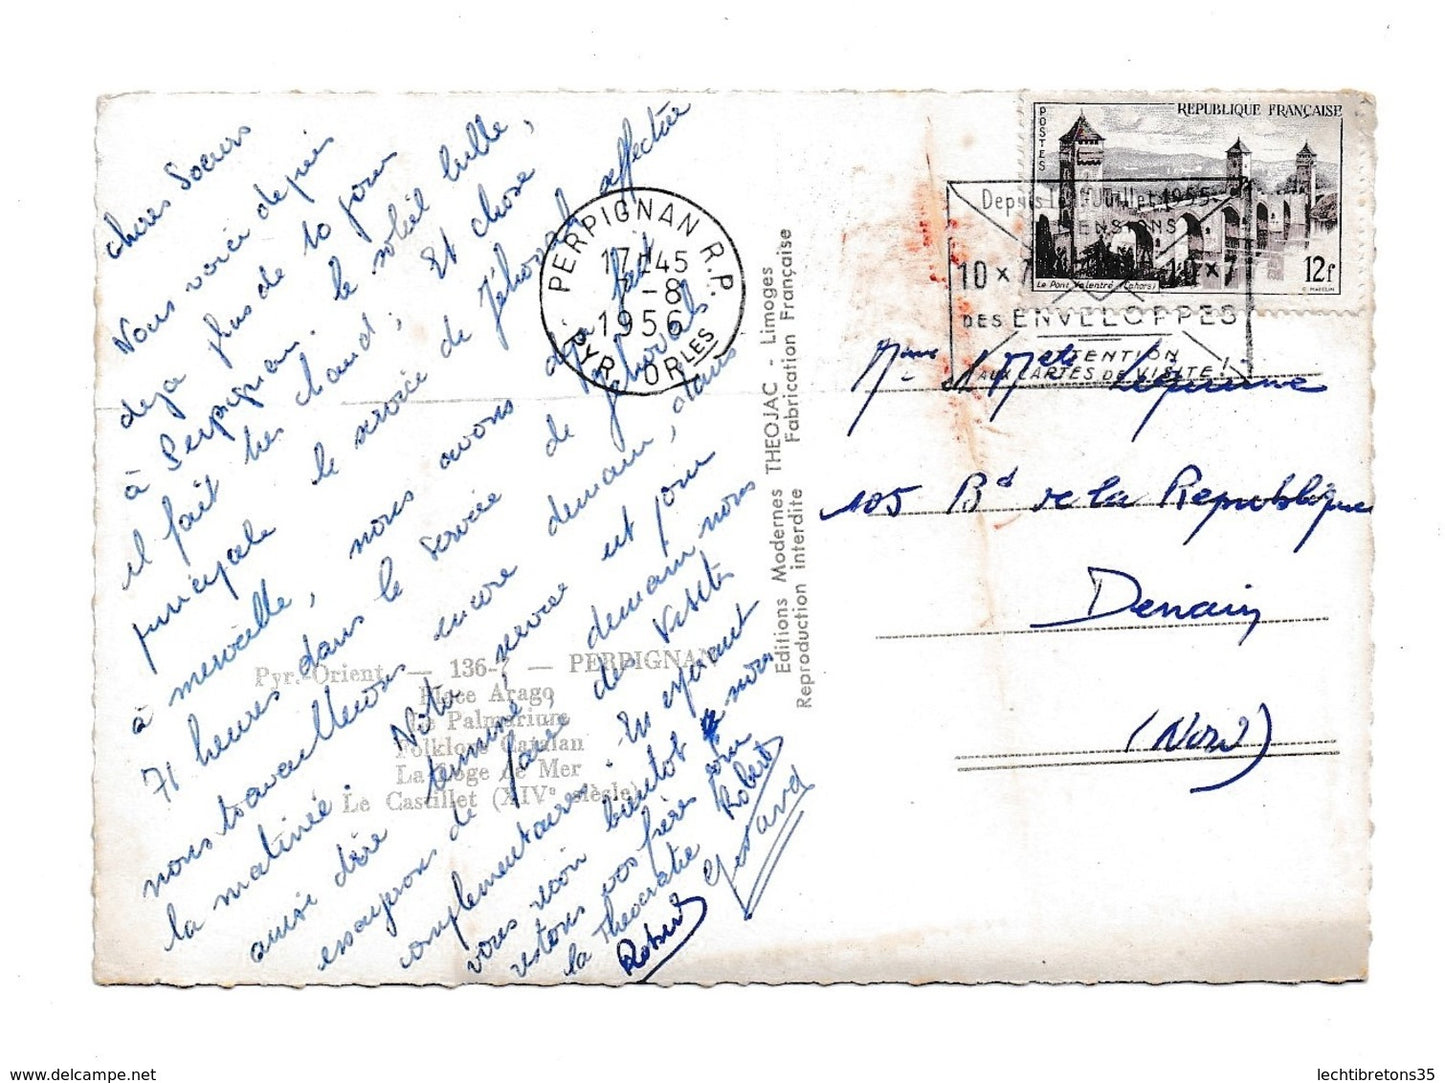 Chères Soeurs
Nous voici depuis
deja plus de 10 jours
à Perpignan le soleil brille,
il fait tres chaud, Et chose
principale le service de Jéhovah s'effectue
à merveille, nous avons déja fait
71 heures dans le Service de Jéhovah.
nous travaillerons encore demain, dans
la matinée. Notre service est pour
ainsi dire terminé, demain nous
essayerons de faire des Visites
complementaires. En esperant
vous revoir bientot nous
restons vos frères pour
la Theocratie Robert
Robert Gerard
Pyr.-Orient. — 136-7 — PERPIGNAN
Place Arago
Le Palmarium
Folklore Catalan
La Loge de Mer
Le Castillet (XIVe siècle)
PERPIGNAN R.P.
17H45
7-8
1956
PYR. ORLES
Editions Modernes THEOJAC - Limoges
Reproduction interdite Fabrication Française
REPUBLIQUE FRANÇAISE
POSTES
Le Pont Valentré (Cahors)
12f
Depuis le 1 Juillet 1955
DIMENSIONS
10 x 7 10 x 7
DES ENVELOPPES
ATTENTION
AUX CARTES DE VISITE !
Mme Melle
105 Bd de la Republique
Denain
(Nord)
delcampe.net
lechtibretons35